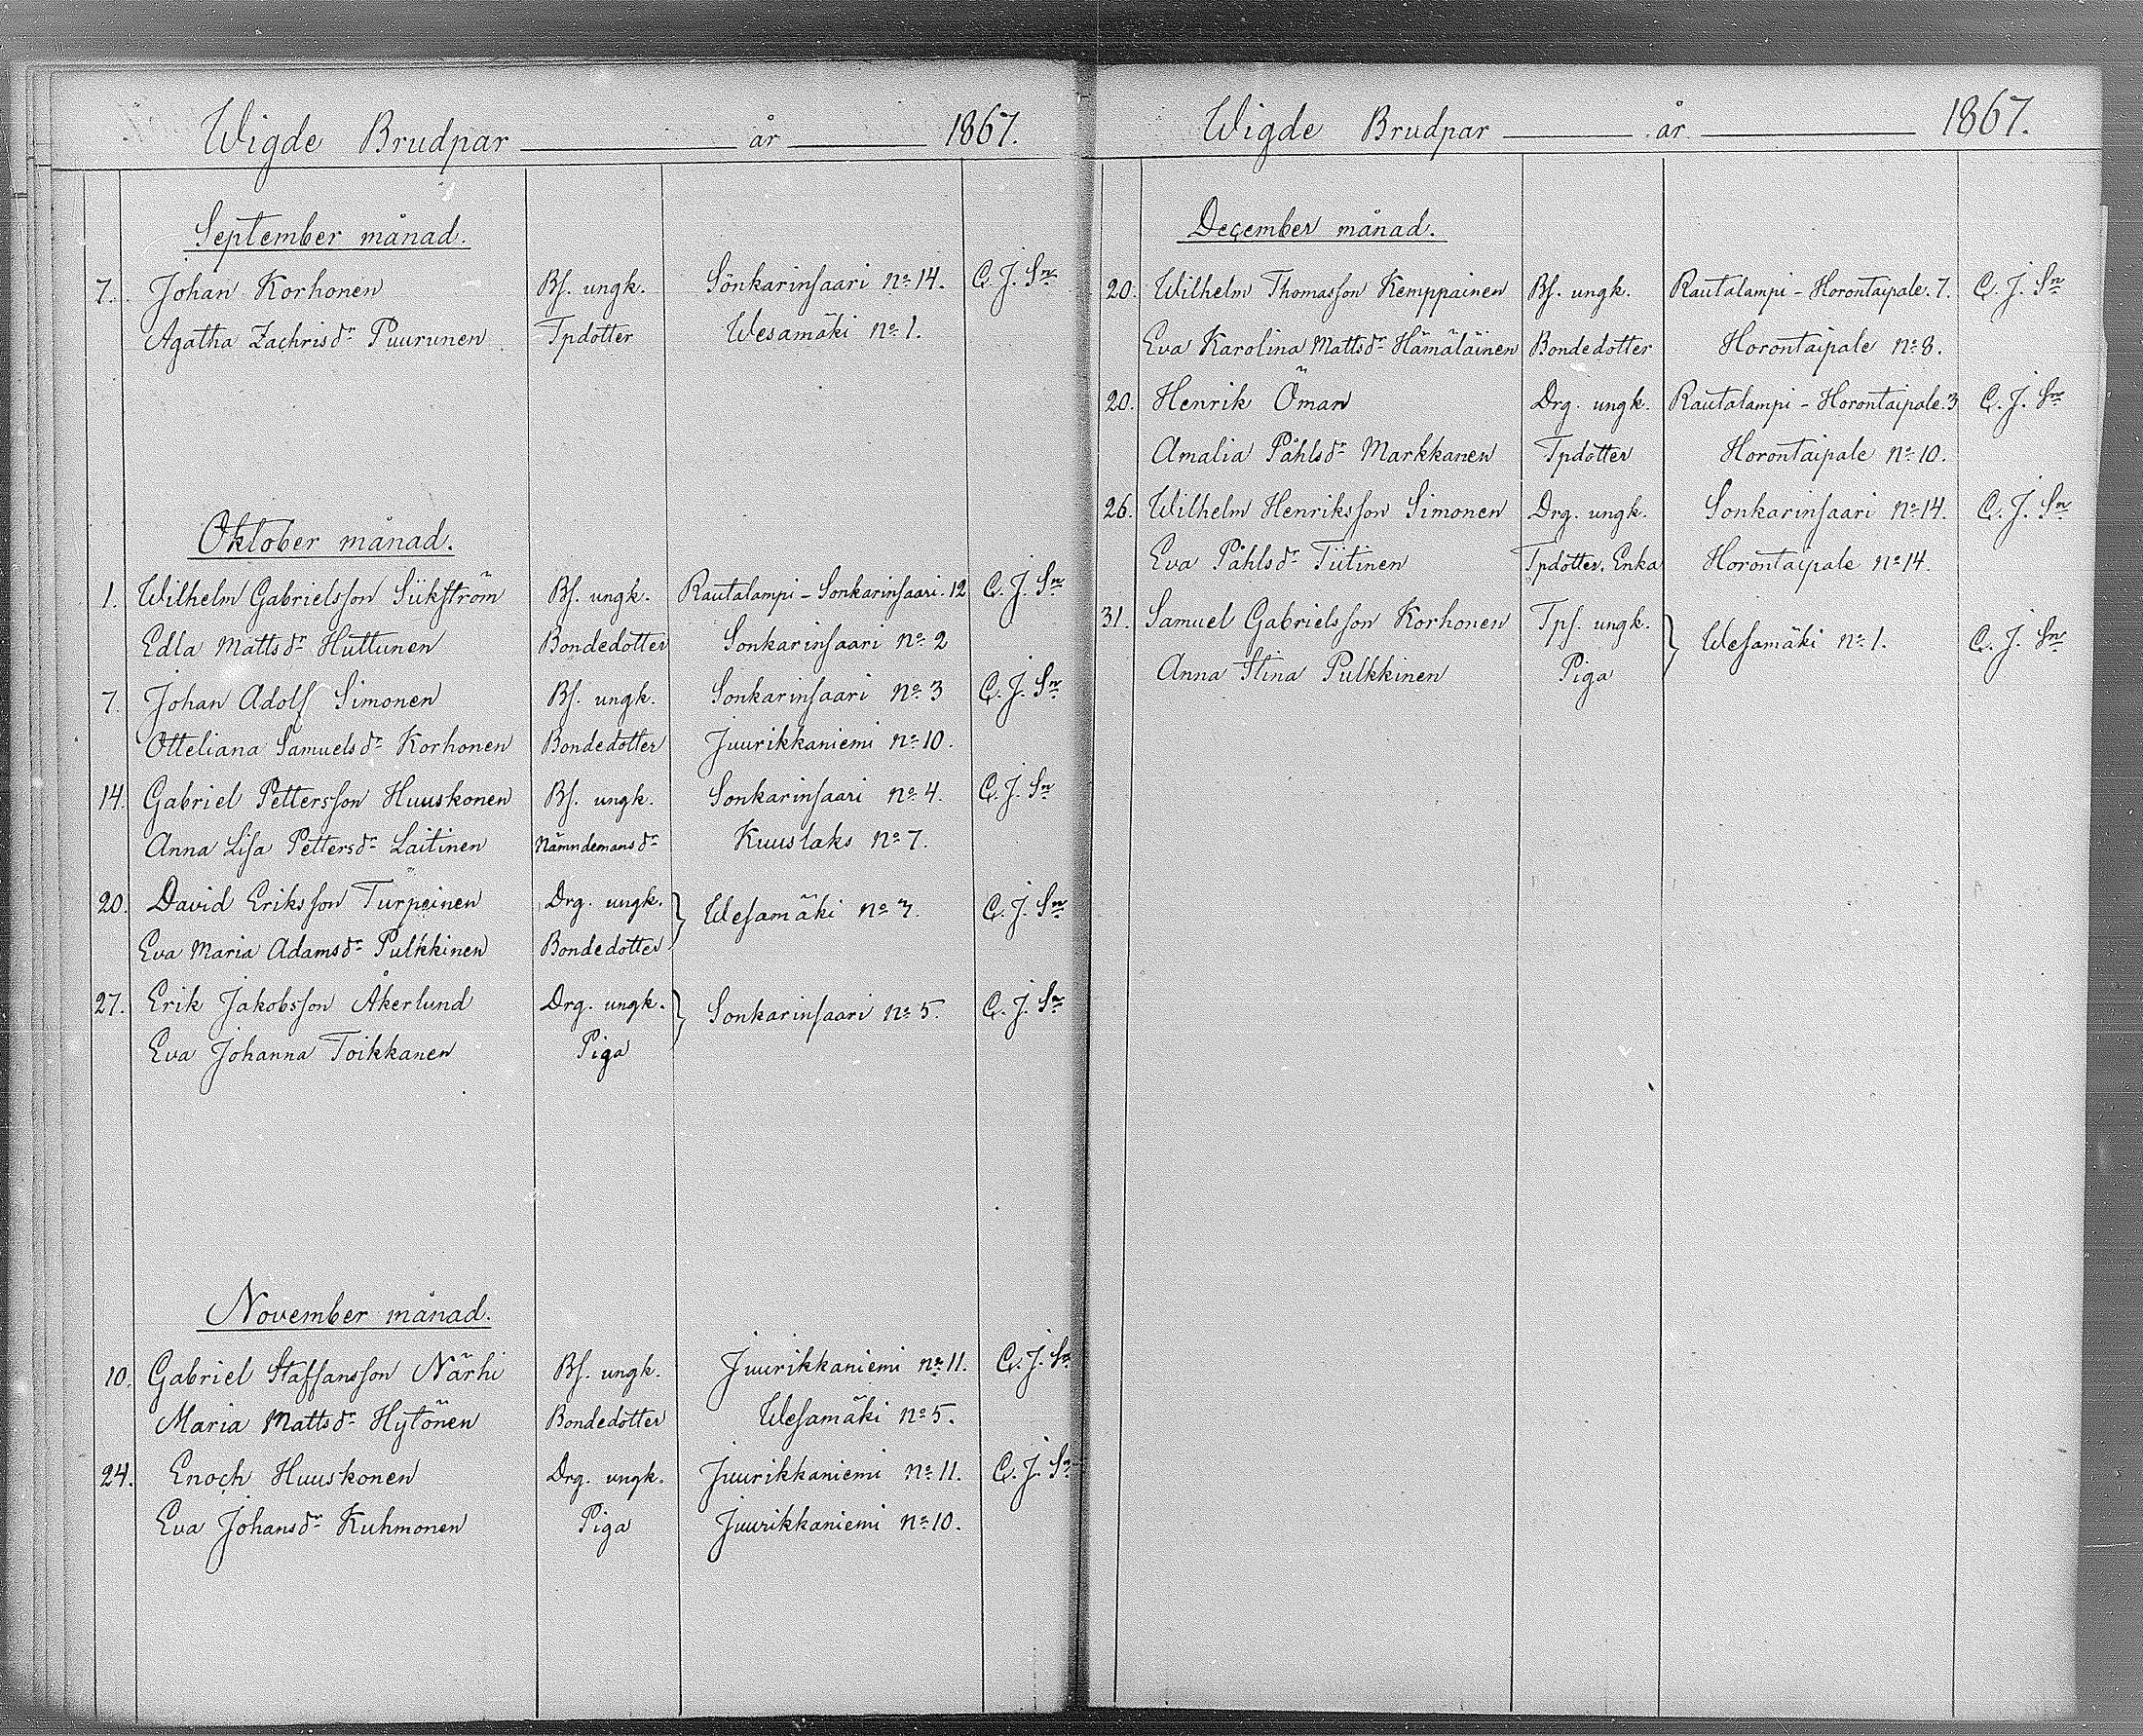 Wigde Brudpar år 1867.
September månad.
7. Johan Korhonen Bs. ungk. Sonkarinsaari No 14. C. J. Sn
Agatha Zachrisdr Puurunen Tpdotter Wesamäki No 1.
Oktober månad.
1. Wilhelm Gabrielsson Siikström Bs. ungk. Rautalampi - Sonkarinsaari. 12 C. J. Sn
Edla Mattsdr Huttunen Bondedotter Sonkarinsaari No 2
7. Johan Adolf Simonen Bs. ungk. Sonkarinsaari No 3 C. J. Sn
Otteliana Samuelsdr Korhonen Bondedotter Juurikkaniemi No 10.
14. Gabriel Pettersson Huuskonen Bs. ungk. Sonkarinsaari No 4. C. J. Sn
Anna Lisa Pettersdr Laitinen Nämndemansdr Kuuslaks No 7.
20. David Eriksson Turpeinen Drg. ungk. } Wesamäki No 7. C. J. Sn
Eva Maria Adamsdr Pulkkinen Bondedotter
27. Erik Jakobsson Åkerlund Drg. ungk. } Sonkarinsaari No 5. C. J. Sn
Eva Johanna Toikkanen Piga
November månad.
10. Gabriel Staffansson Närhi Bs. ungk. Juurikkaniemi No 11. C. J. Sn
Maria Mattsdr Hytönen Bondedotter Wesamäki No 5.
24. Enoch Huuskonen Drg. ungk. Juurikkaniemi No 11. C. J. Sn
Eva Johansdr Kuhmonen Piga Juurikkaniemi No 10.
Wigde Brudpar år 1867.
December månad.
20. Wilhelm Thomasson Kemppainen Bs. ungk. Rautalampi - Horontaipale. 7. C. J. Sn
Eva Karolina Mattsdr Hämäläinen Bondedotter Horontaipale No 8.
20. Henrik Öman Drg. ungk. Rautalampi - Horontaipale. 3 C. J. Sn
Amalia Påhlsdr Markkanen Tpdotter Horontaipale No 10.
26. Wilhelm Henriksson Simonen Drg. ungk. Sonkarinsaari No 14. C. J. Sn
Eva Påhlsdr Tiitinen Tpdotter. Enka Horontaipale No 14.
31. Samuel Gabrielsson Korhonen Tps. ungk. } Wesamäki No 1. C. J. Sn
Anna Stina Pulkkinen Piga